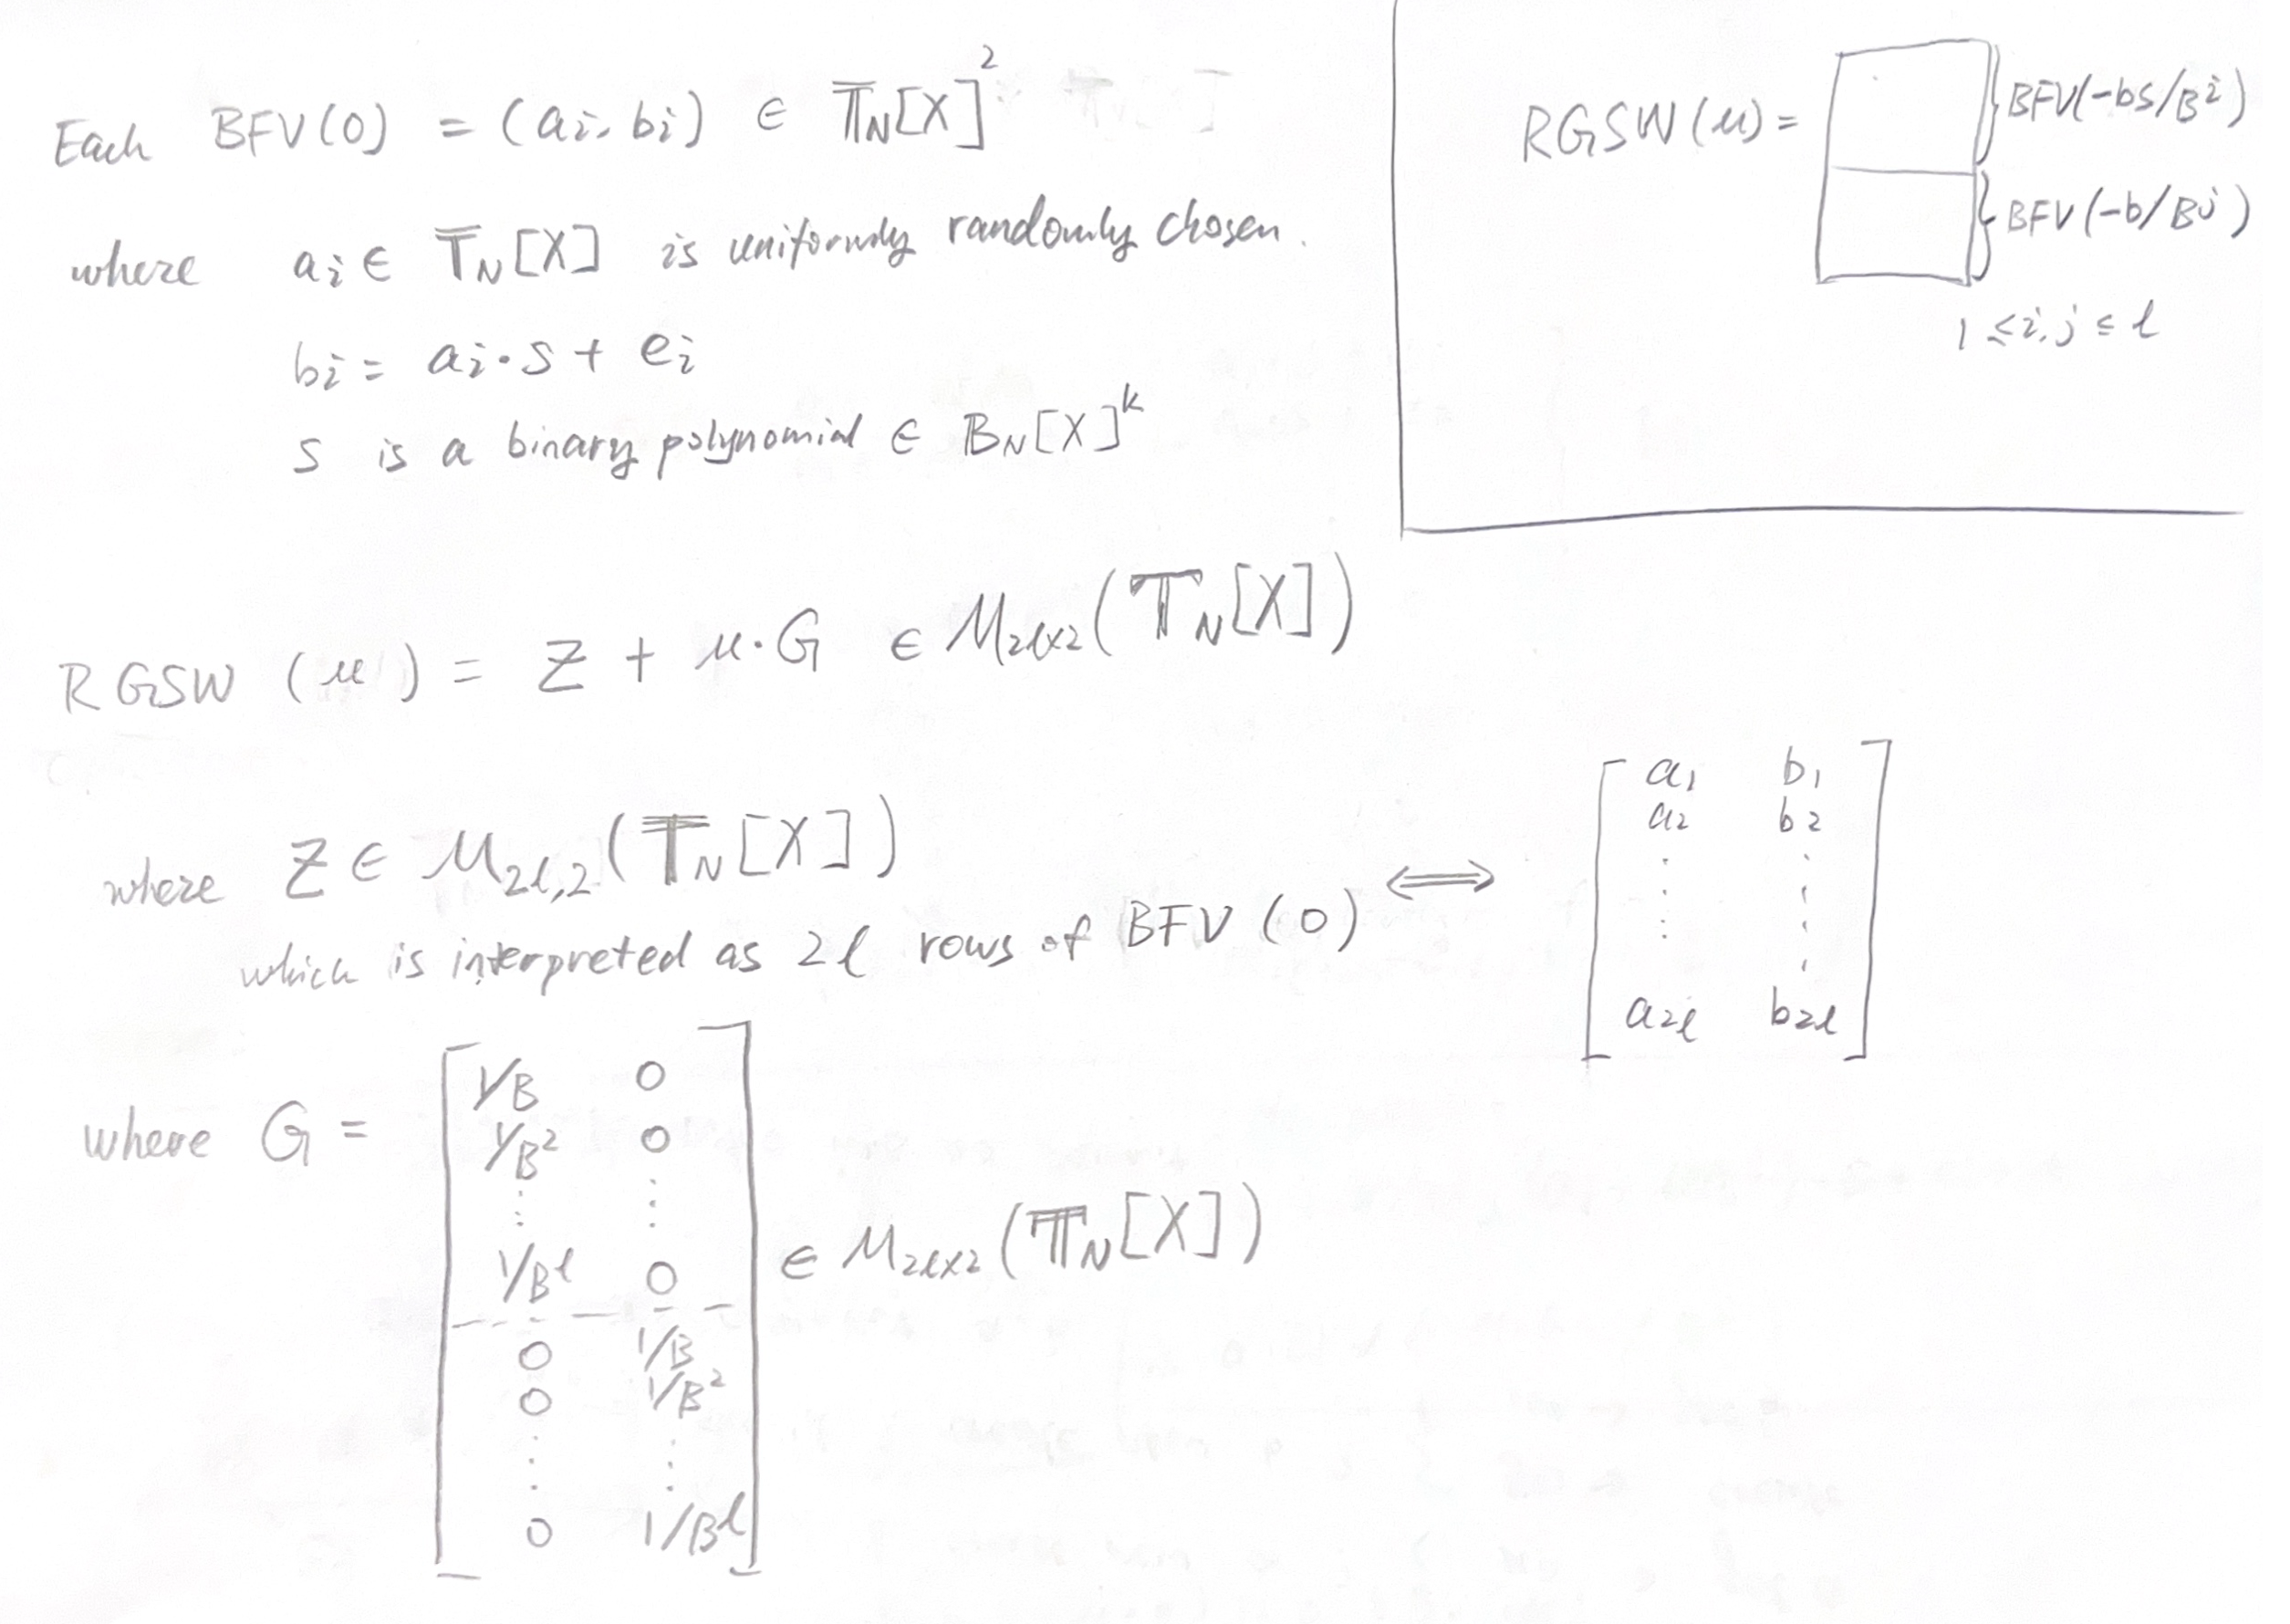 Each BFV(0) = (ai, bi) ∈ 𝕋N[X]²
where ai ∈ 𝕋N[X] is uniformly randomly chosen.
bi = ai·s + ei
s is a binary polynomial ∈ 𝔹N[X]^k
RGSW(μ) =
BFV(-bs/B^i)
BFV(-b/B^j)
1 ≤ i, j ≤ l
RGSW (μ) = Z + μ·G ∈ M2l×2(𝕋N[X])
where Z ∈ M2l,2(𝕋N[X])
which is interpreted as 2l rows of BFV(0) ⟺
a1 b1
a2 b2
⋮ ⋮
a2l b2l
where G =
1/B 0
1/B² 0
⋮ ⋮
1/B^l 0
0 1/B
0 1/B²
⋮ ⋮
0 1/B^l
∈ M2l×2(𝕋N[X])